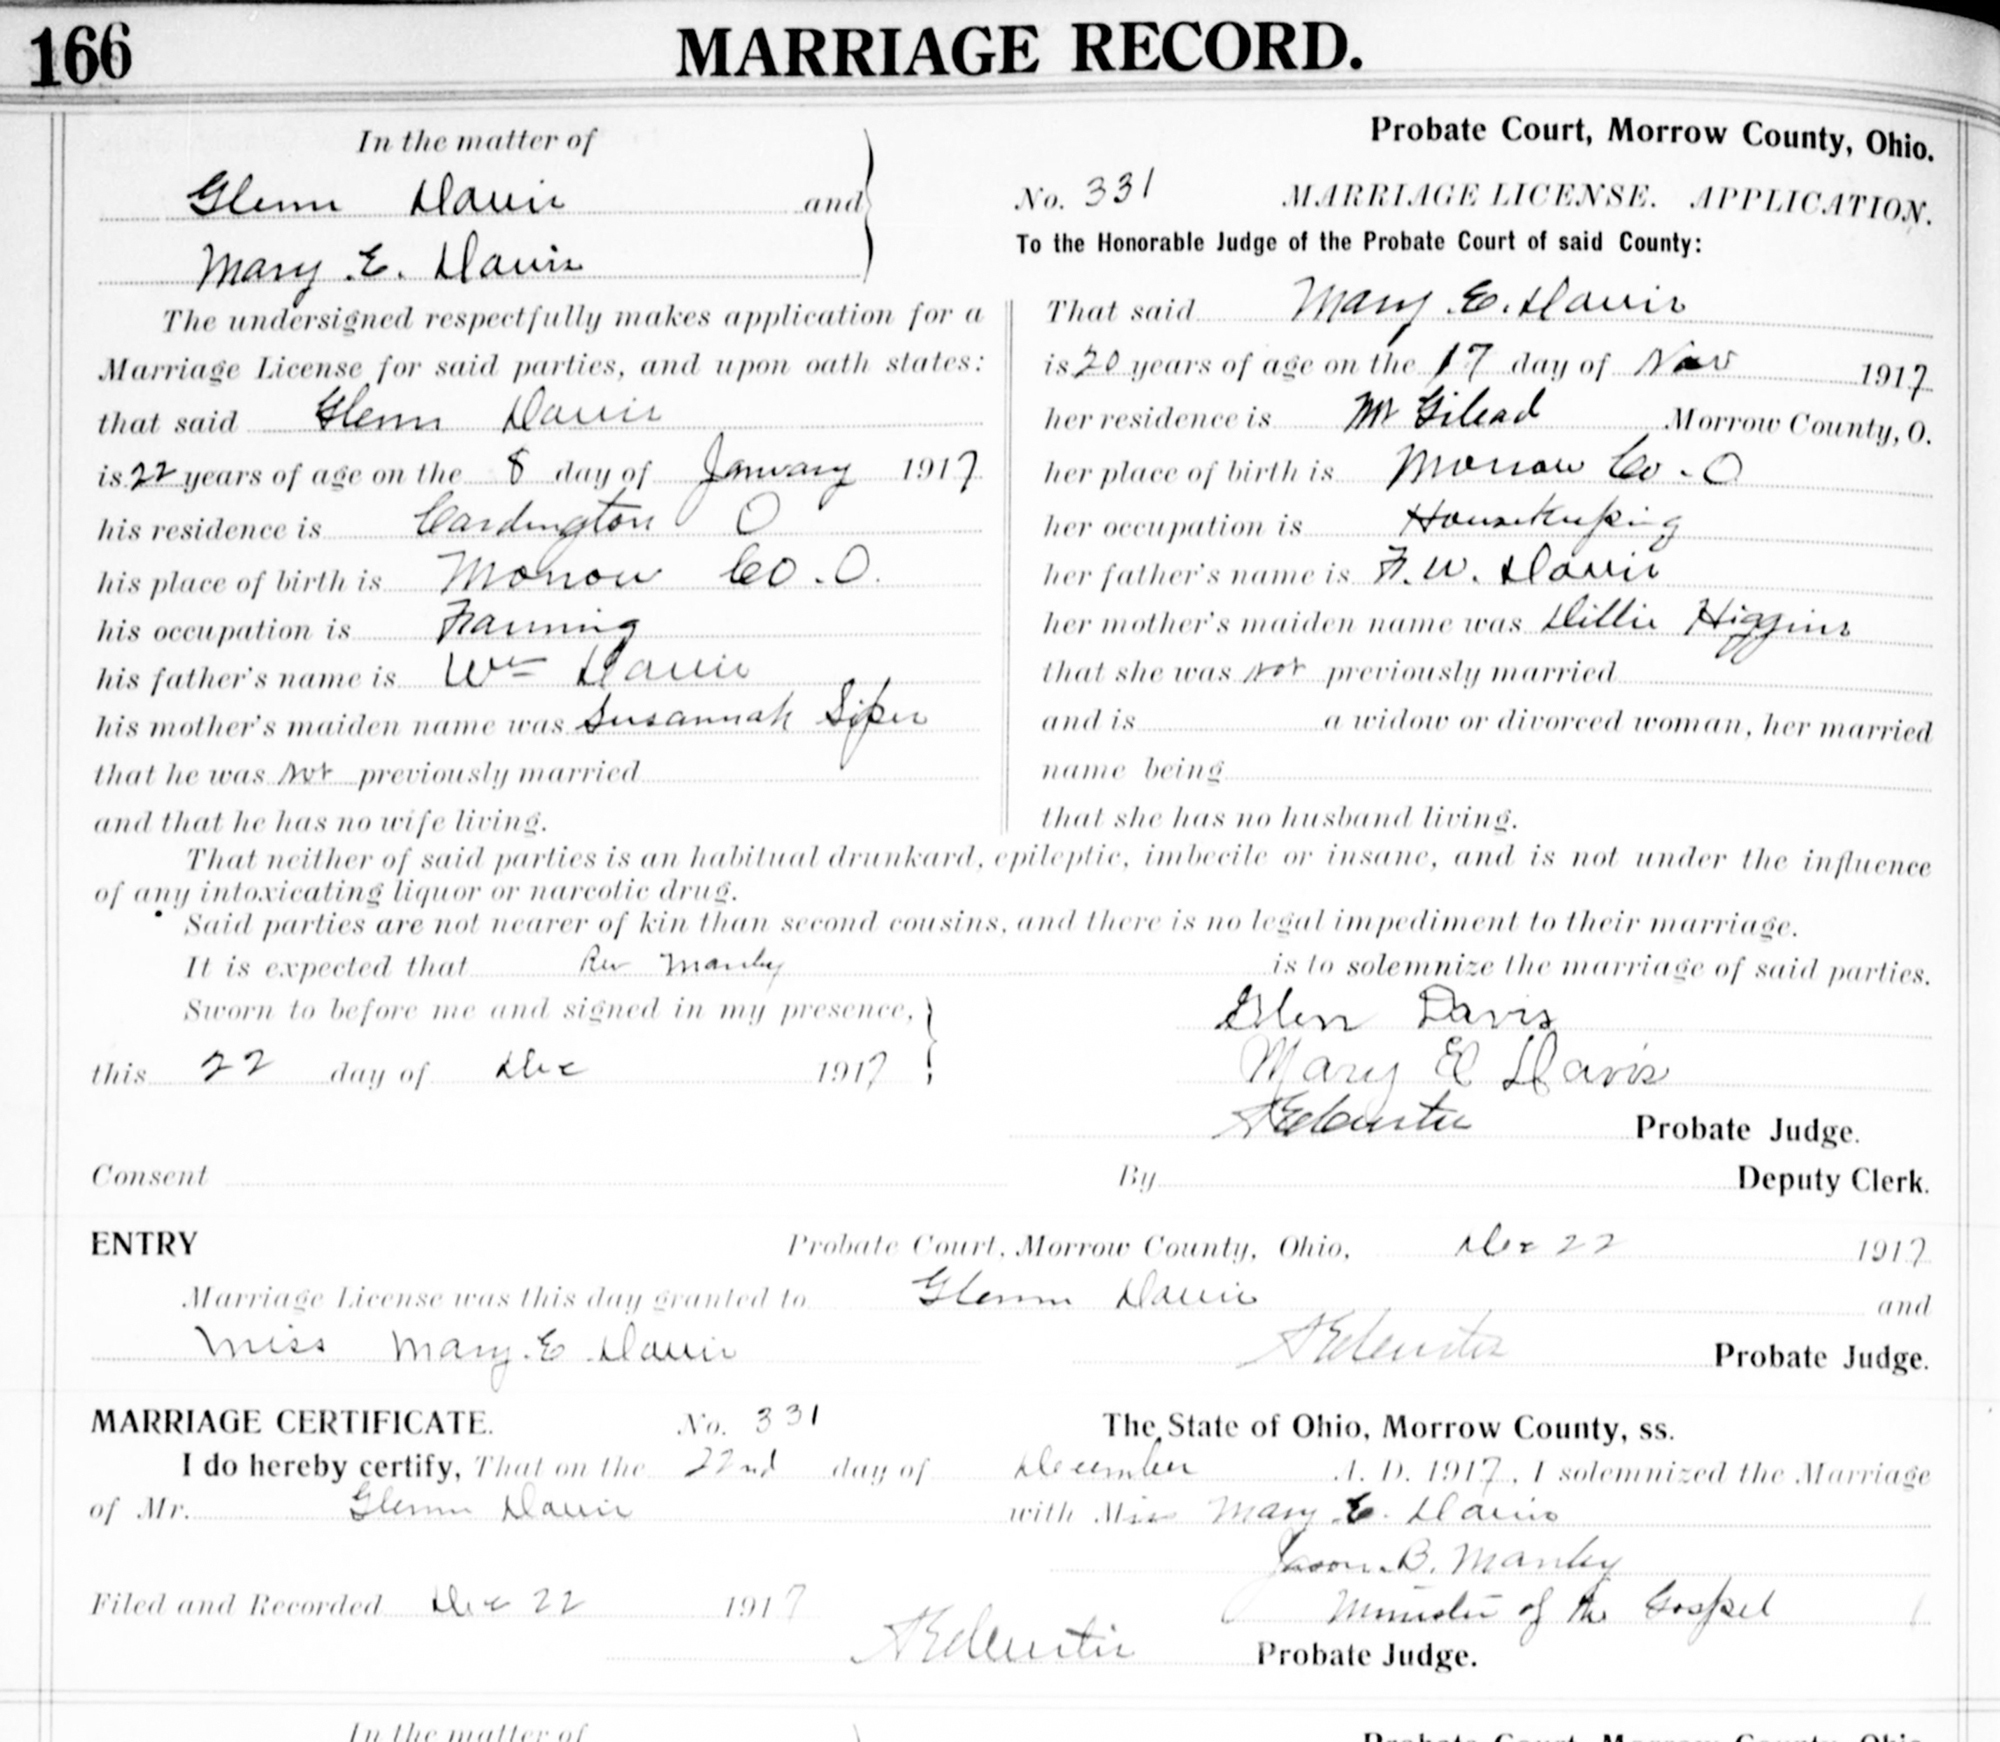 166
MARRIAGE RECORD.
In the matter of
Glenn Davis and
Mary E. Davis
Probate Court, Morrow County, Ohio.
No. 331 MARRIAGE LICENSE. APPLICATION.
To the Honorable Judge of the Probate Court of said County:
The undersigned respectfully makes application for a
Marriage License for said parties, and upon oath states:
that said Glenn Davis
is 22 years of age on the 8 day of January 1917
his residence is Cardington O
his place of birth is Morrow Co. O.
his occupation is Farming
his father's name is Wm Davis
his mother's maiden name was Susannah Sipes
that he was not previously married
and that he has no wife living.
That said Mary E. Davis
is 20 years of age on the 17 day of Nov 1917
her residence is Mt Gilead Morrow County, O.
her place of birth is Morrow Co. O
her occupation is Housekeeping
her father's name is F. W. Davis
her mother's maiden name was Dillie Higgins
that she was not previously married
and is a widow or divorced woman, her married
name being
that she has no husband living.
That neither of said parties is an habitual drunkard, epileptic, imbecile or insane, and is not under the influence
of any intoxicating liquor or narcotic drug.
Said parties are not nearer of kin than second cousins, and there is no legal impediment to their marriage.
It is expected that Rev Manley is to solemnize the marriage of said parties.
Sworn to before me and signed in my presence,
this 22 day of Dec 1917
Glen Davis
Mary E Davis
Probate Judge.
Consent By Deputy Clerk.
ENTRY Probate Court, Morrow County, Ohio, Dec 22 1917
Marriage License was this day granted to Glenn Davis and
Miss Mary E Davis
Probate Judge.
MARRIAGE CERTIFICATE. No. 331 The State of Ohio, Morrow County, ss.
I do hereby certify, That on the 22nd day of December A. D. 1917, I solemnized the Marriage
of Mr. Glenn Davis with Miss Mary E. Davis
Jason B. Manley
Filed and Recorded Dec 22 1917 Minister of the Gospel
Probate Judge.
In the matter of
Probate Court, Morrow County, Ohio.